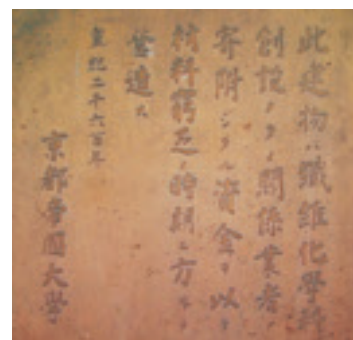 此建物ハ纎維化學科
創設ノタメ關係業者ノ
寄附シタル資金ヲ以テ
材料窮乏ノ時期ニ方リ
營造ス
皇紀二千六百年
京都帝國大學